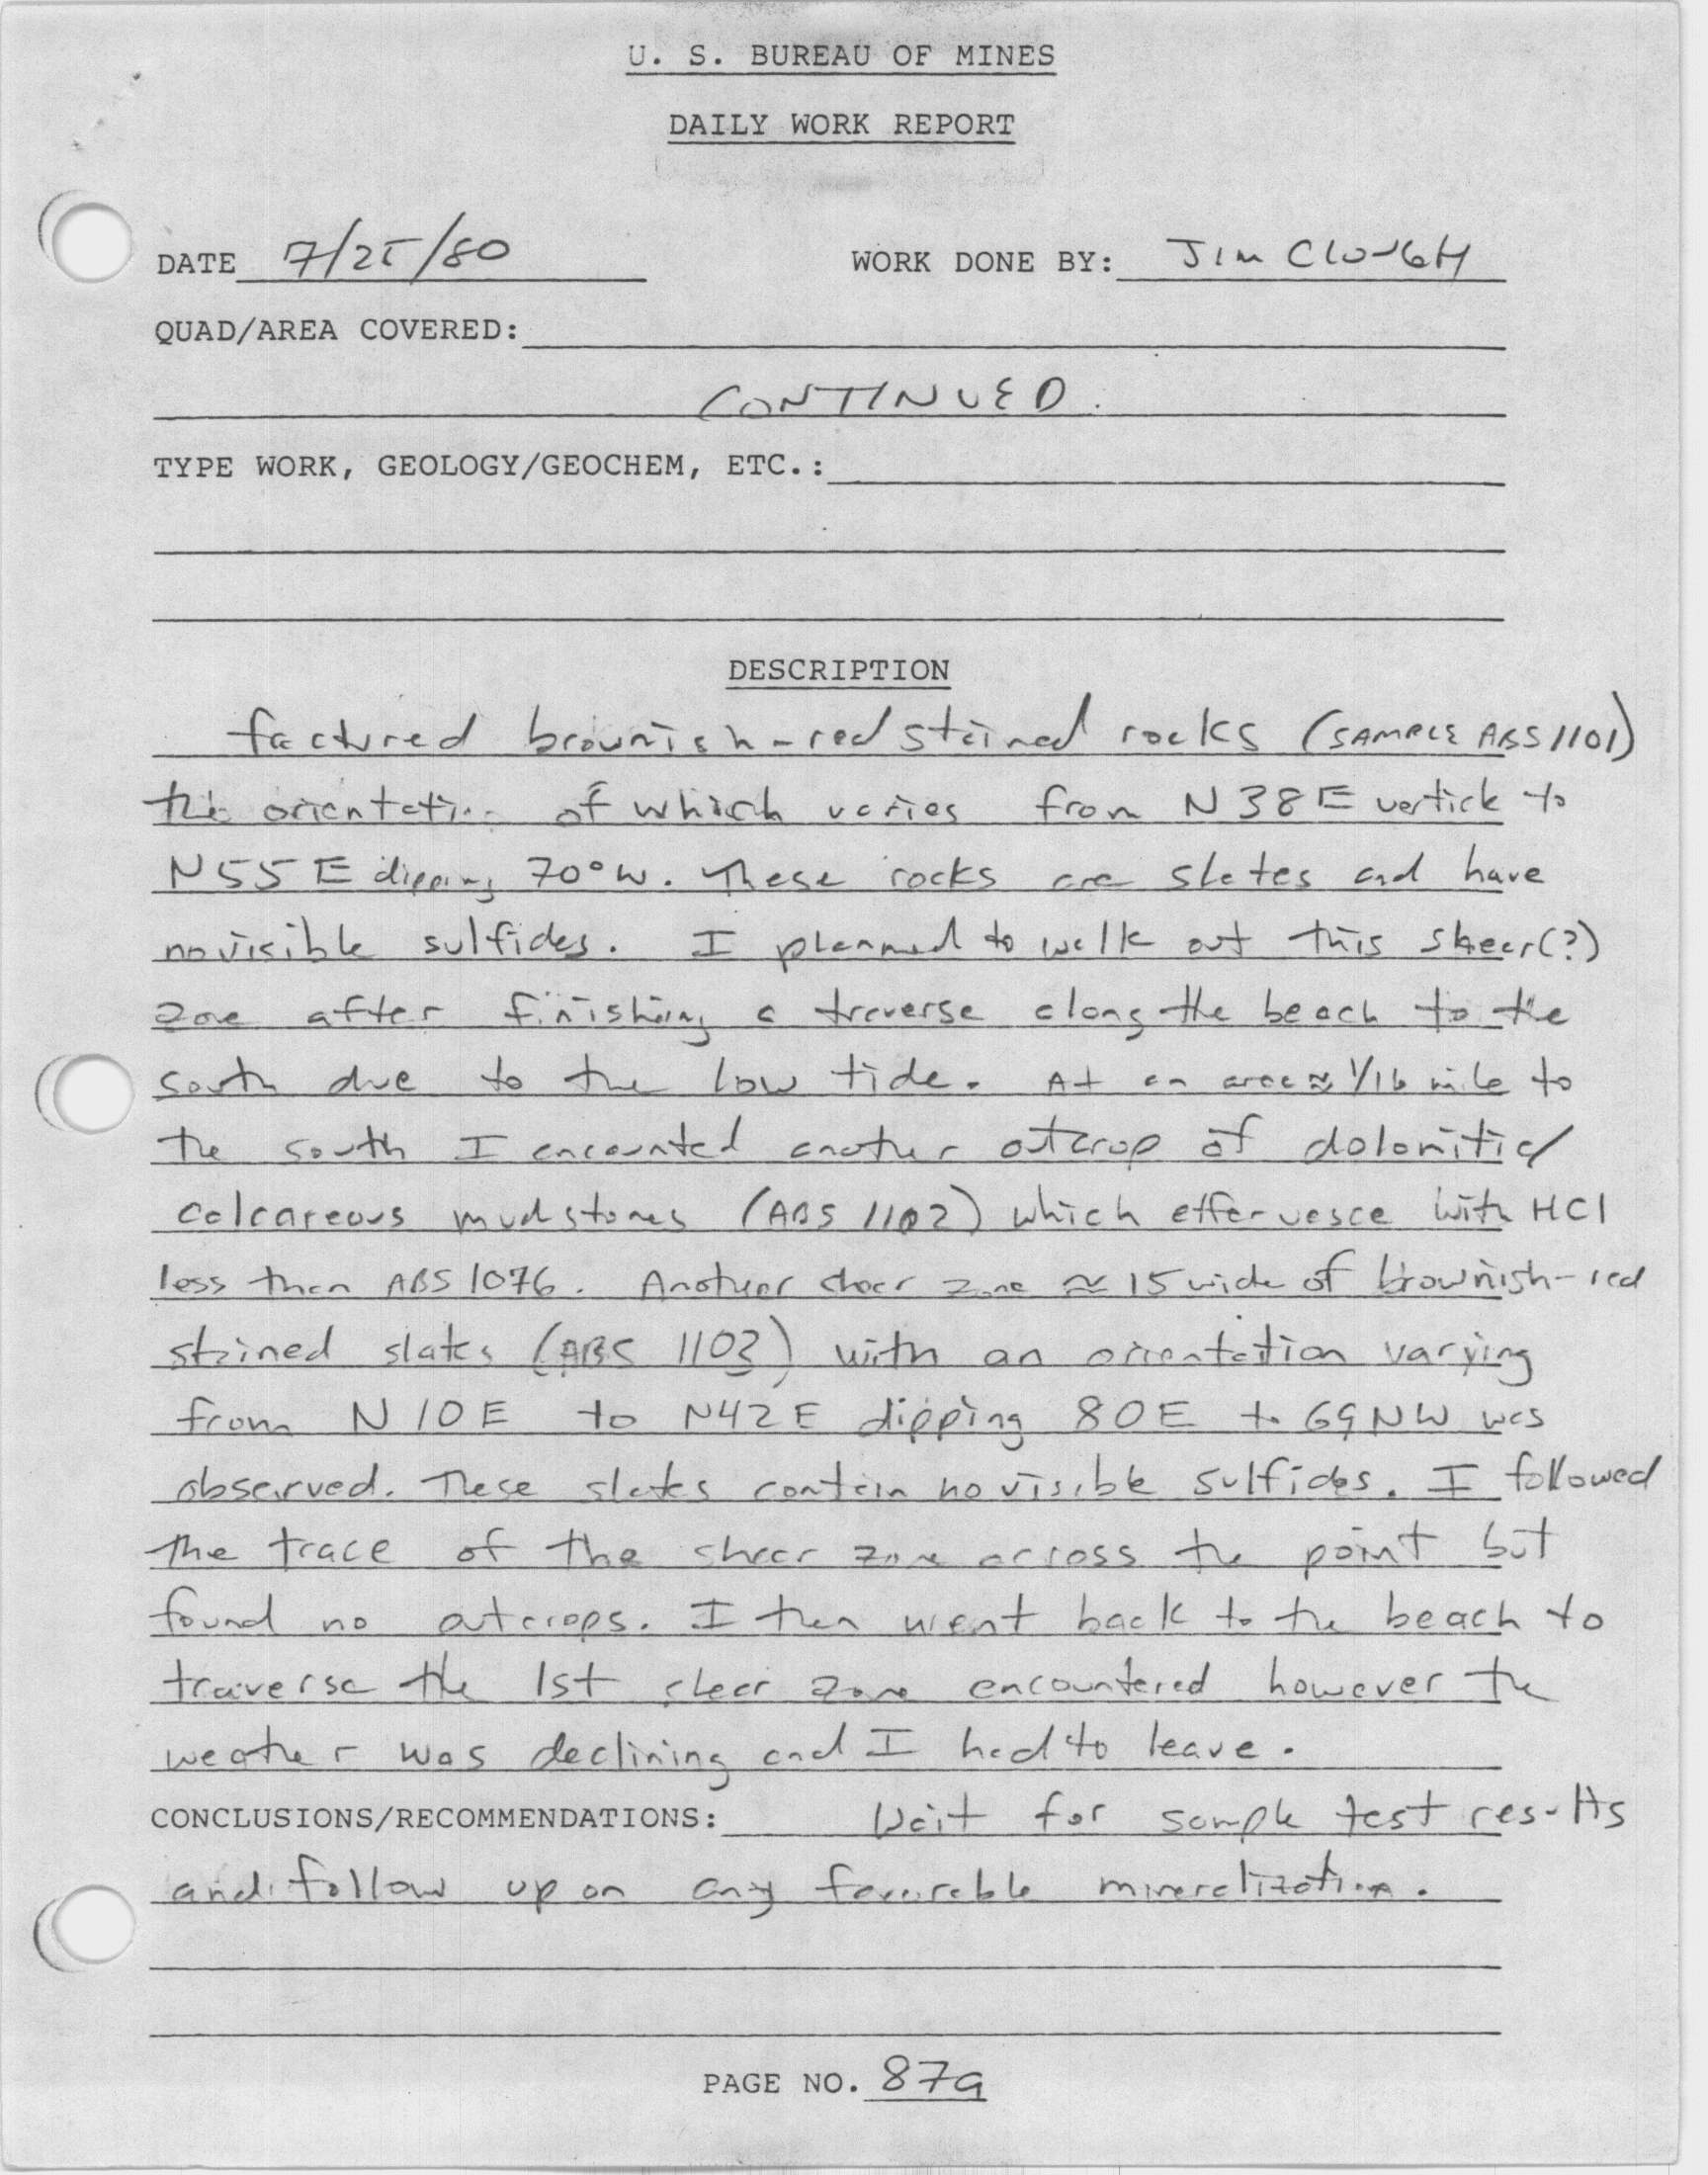 U. S. BUREAU OF MINES
DAILY WORK REPORT
DATE 7/25/80 WORK DONE BY: JIM CLOUGH
QUAD/AREA COVERED:
CONTINUED.
TYPE WORK, GEOLOGY/GEOCHEM, ETC.:
DESCRIPTION
factured brownish-red stained rocks (SAMPLE ABS 1101)
the orientation of which varies from N38E vertick to
N55E dipping 70°W. These rocks are slates and have
no visible sulfides. I planned to walk out this shear(?)
zone after finishing a traverse along the beach to the
south due to the low tide. At an area ≈ 1/16 mile to
the south I encounted another outcrop of dolomitic/
calcareous mudstones (ABS 1102) which effervesce with HCl
less than ABS 1076. Another shear zone ≈ 15 wide of brownish-red
stained slates (ABS 1103) with an orientation varying
from N10E to N42E dipping 80E to 69NW was
observed. These slates contain no visible sulfides. I followed
the trace of the shear zone across the point but
found no outcrops. I then went back to the beach to
traverse the 1st shear zone encountered however the
weather was declining and I had to leave.
CONCLUSIONS/RECOMMENDATIONS: Wait for sample test results
and follow up on any favorable mineralization.
PAGE NO. 87a